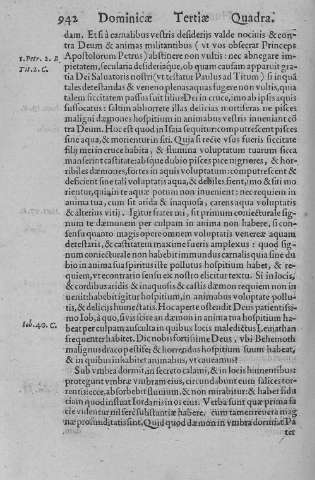 942 Dominicæ Tertiæ Quadra.
dam. Etsi à carnalibus vestris desiderijs valde nociuis & con-
tra Deum & animas militantibus (vt vos obsecrat Princeps
1. Petr. 2. B Apostolorum Petrus) abstinere non vultis: nec abnegare im-
Tit. 2. C. pietatem, secularia desideriaque, ob quam causam apparuit gra-
tia Dei Saluatoris nostri (vt testatur Paulus ad Titum) si inquã
tales detestandas & veneno plenas aquas fugere non vultis, quia
talem siccitatem passus fuit filius Dei in cruce, imo ab ipsis aquis
suffocatus: saltem abhorrete illas delicias mortiferas ne pisces
maligni dæmones hospitium in animabus vestris inueniant cõ
tra Deum. Hoc est quod in Isaia sequitur: computrescent pisces
sine aqua, & morientur in siti. Quia si recte vsus fueris siccitate
filij mei in cruce habita, & flumina voluptatum tuarum sicca
manserint castitate: absque dubio pisces pice nigriores, & hor-
ribiles dæmones, fortes in aquis voluptatum: computrescent &
deficient sine tali voluptatis aqua, & debiles fient, imo & siti mo
rientur, quia in te aquæ potum non inuenient: nec requiem in
anima tua, cum sit arida & inaquosa, carens aqua voluptatis
& alterius vitij. Igitur fratres mi, sit primum coniecturale sig-
num te dæmonem per culpam in anima non habere, si con-
sensu quanto magis opere omnem voluptatis venereæ aquam
detestaris, & castitatem maxime fueris amplexus: quod sig-
num coniecturale non habebit immundus carnalis quia sine du
bio in anima sua spiritus iste pollutus hospitium habet, & re-
quiem, vt e contrario sensu ex nostro elicitur textu. Si in locis,
& cordibus aridis & inaquosis & castis dæmon requiem non in
uenit: habebit igitur hospitium, in animabus voluptate pollu-
tis, & delicijs humectatis. Hoc aperte ostendit Deus patientissi-
mo Iob, à quo, si vis scire an dæmon in anima tua hospitium ha-
Iob. 40. C. beat per culpam ausculta in quibus locis maledictus Leuiathan
frequenter habitet. Dic nobis fortissime Deus, vbi Behemoth
malignus draco pestifer & horrendus hospitium suum habeat,
& in quibus inhabitet animabus, vt caueamus?
Sub vmbra dormit, in secreto calami, & in locis humentibus:
protegunt vmbræ vmbram eius, circundabunt eum salices tor-
rentis: ecce, absorbebit fluuium, & non mirabitur: & habet fidu
ciam quod influat Iordanis in os eius. Verba sunt quæ prima fa-
cie videntur nil fere substantiæ habere, cum tamen reuera mag
næ profunditatis sint. Quid quod dæmon in vmbra dormiat? Pa
tet